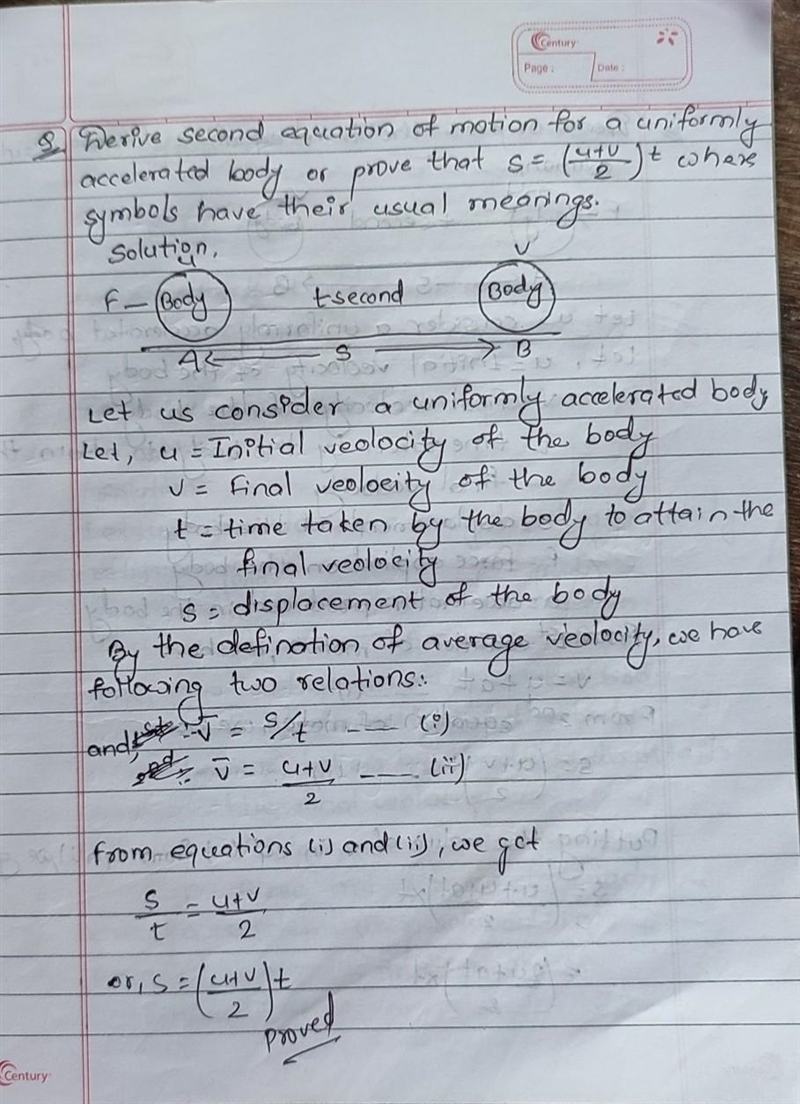 Century
Page : Date :
Q. Derive second equation of motion for a uniformly
accelerated body or prove that s = (u+v/2)t where
symbols have their usual meanings.
Solution,
u v
F — Body t second Body
A ← S → B
Let us consider a uniformly accelerated body
Let, u = Initial veolocity of the body
v = final veolocity of the body
t = time taken by the body to attain the
final veolocity
s = displacement of the body
By the defination of average veolocity, we have
following two relations:
v̄ = s/t --- (i)
and,
v̄ = u+v/2 --- (ii)
from equations (i) and (ii), we get
s/t = u+v/2
or, s = (u+v/2)t
proved
Century